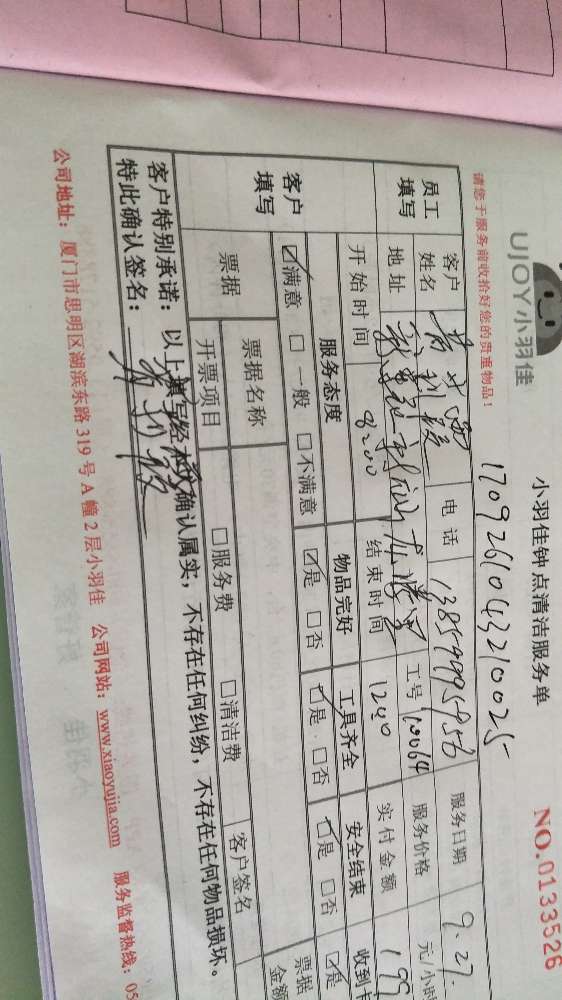 UJOY小羽佳
小羽佳钟点清洁服务单
NO.0133526
请您于服务前收拾好您的贵重物品！
1709261043210025
员工填写
客户姓名
电话
13859995956
服务日期
9.27.
地址
工号
10064
服务价格
元/小时
开始时间
8:00
结束时间
1200
实付金额
199
客户填写
服务态度
物品完好
工具齐全
安全结束
收到卡
☑满意 □一般 □不满意
☑是 □否
☑是 □否
☑是 □否
☑是
票据
票据名称
开票项目
□服务费
□清洁费
客户签名
票据
金额
客户特别承诺：以上填写经本人确认属实，不存在任何纠纷，不存在任何物品损坏。
特此确认签名：
公司地址：厦门市思明区湖滨东路319号A幢2层小羽佳 公司网站：www.xiaoyujia.com 服务监督热线：05